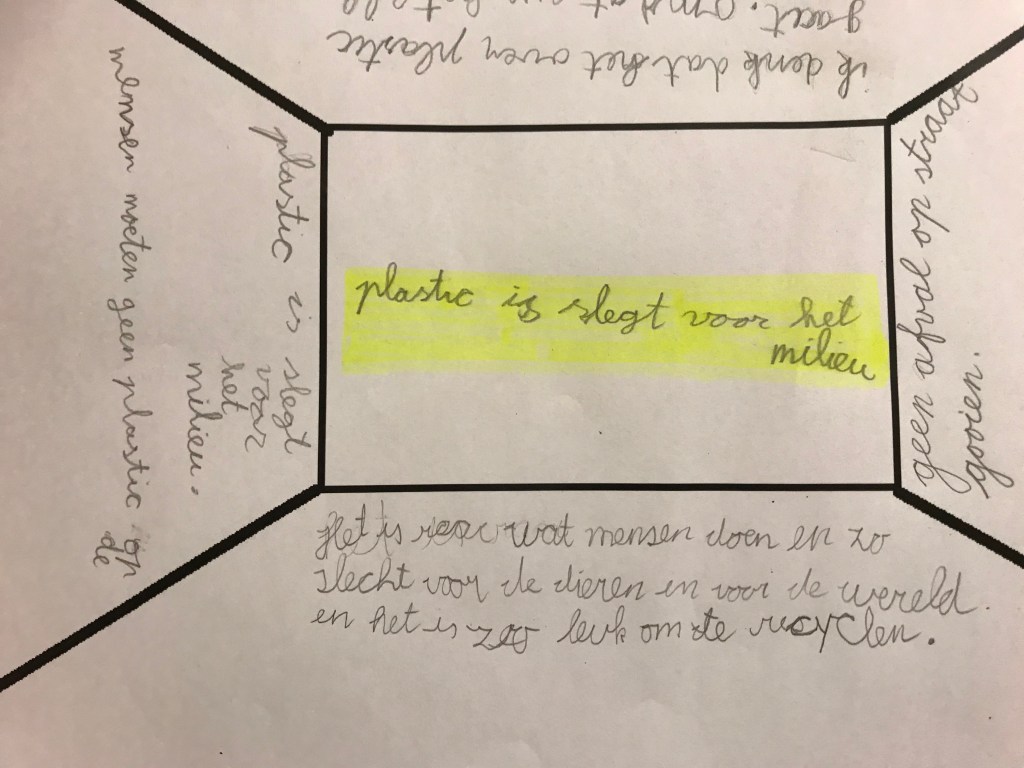 ik denk dat het over plastic
gaat. omdat
plastic is slegt voor het
milieu
geen afval op straat
gooien.
plastic is slegt
voor
het
milieu.
mensen moeten geen plastic op
de
Het is wat mensen doen en zo
slecht voor de dieren en voor de wereld.
en het is zoo leuk om te recyclen.